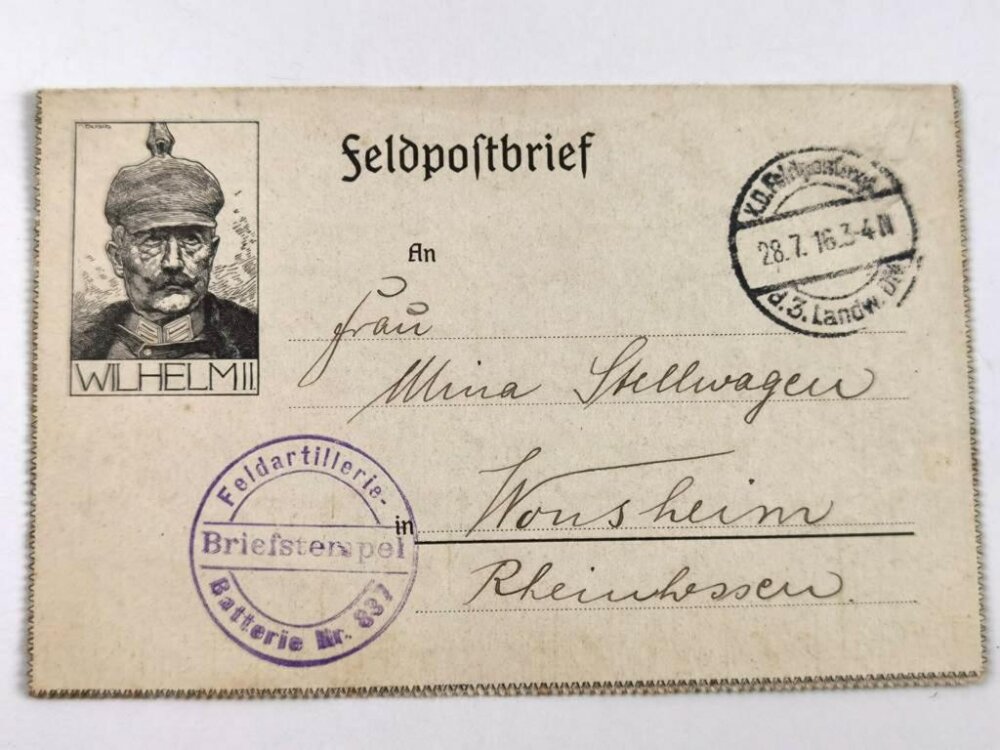 Feldpostbrief
WILHELM II.
K.D. Feldpostexp.
28.7.16.3-4 N
d. 3. Landw. Div.
An
Frau
Mina Stellwagen
in Wonsheim
Rheinhessen.
Feldartillerie-
Briefstempel
Batterie Nr. 837